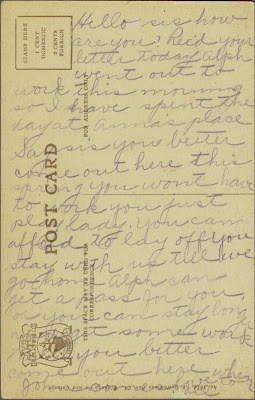 Hello sis how
are you? Rec'd your
letter today Alph
went out to
work this morning
so I have spent the
day at Anna's place
Say sis you better
come out here this
spring you wont have
to work you just
play lady. You can
afford to lay off you
stay with us till we
go home Alph can
get a pass for you,
or you can stay long
some work
you better
come out here when
STAMP HERE
1 CENT
DOMESTIC
2 CENTS
FOREIGN
FOR ADDRESS ONLY
POST CARD
THIS SPACE MAY BE USED FOR
CORRESPONDENCE